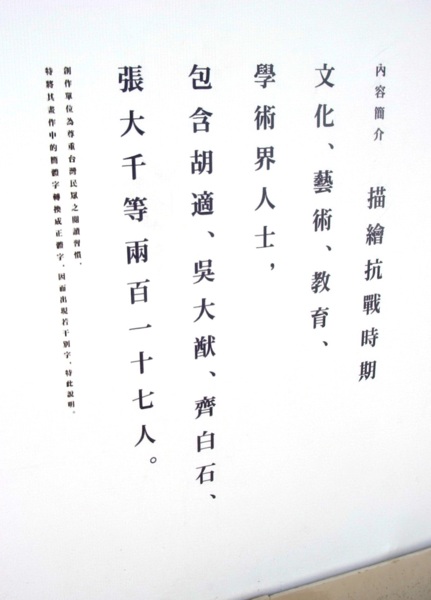 內容簡介　描繪抗戰時期
文化、藝術、教育、
學術界人士，
包含胡適、吳大猷、齊白石、
張大千等兩百一十七人。
創作單位為尊重台灣民眾之閱讀習慣，
特將其畫作中的簡體字轉換成正體字，因而出現若干別字，特此說明。